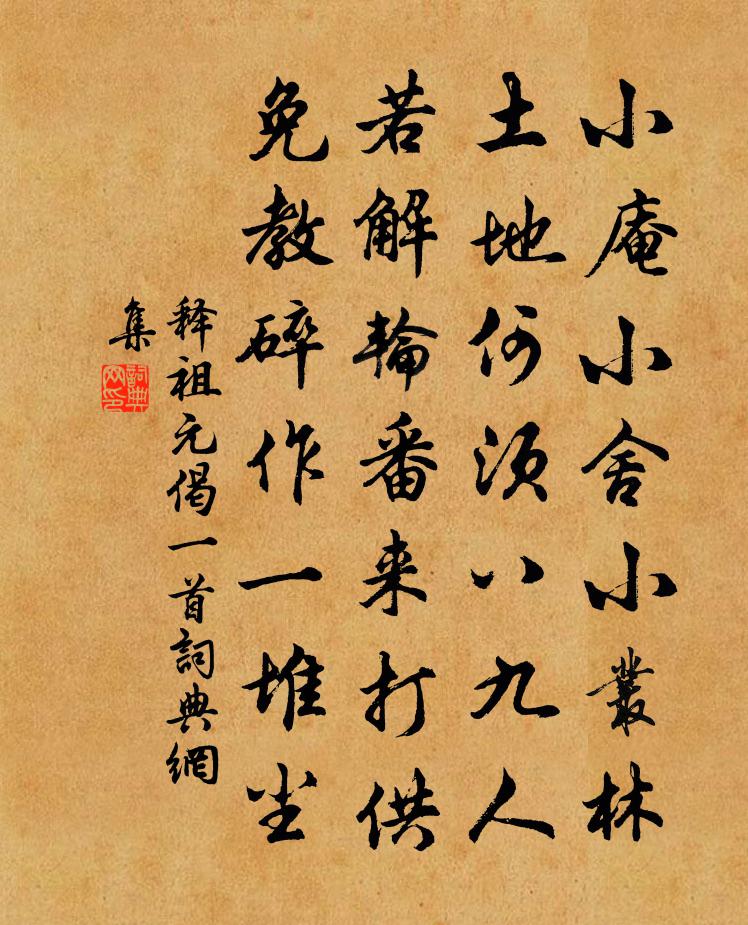 小庵小舍小叢林
土地何須八九人
若解輪番来打供
免教碎作一堆尘
释祖元偈一首詞典網
集
詞典网印